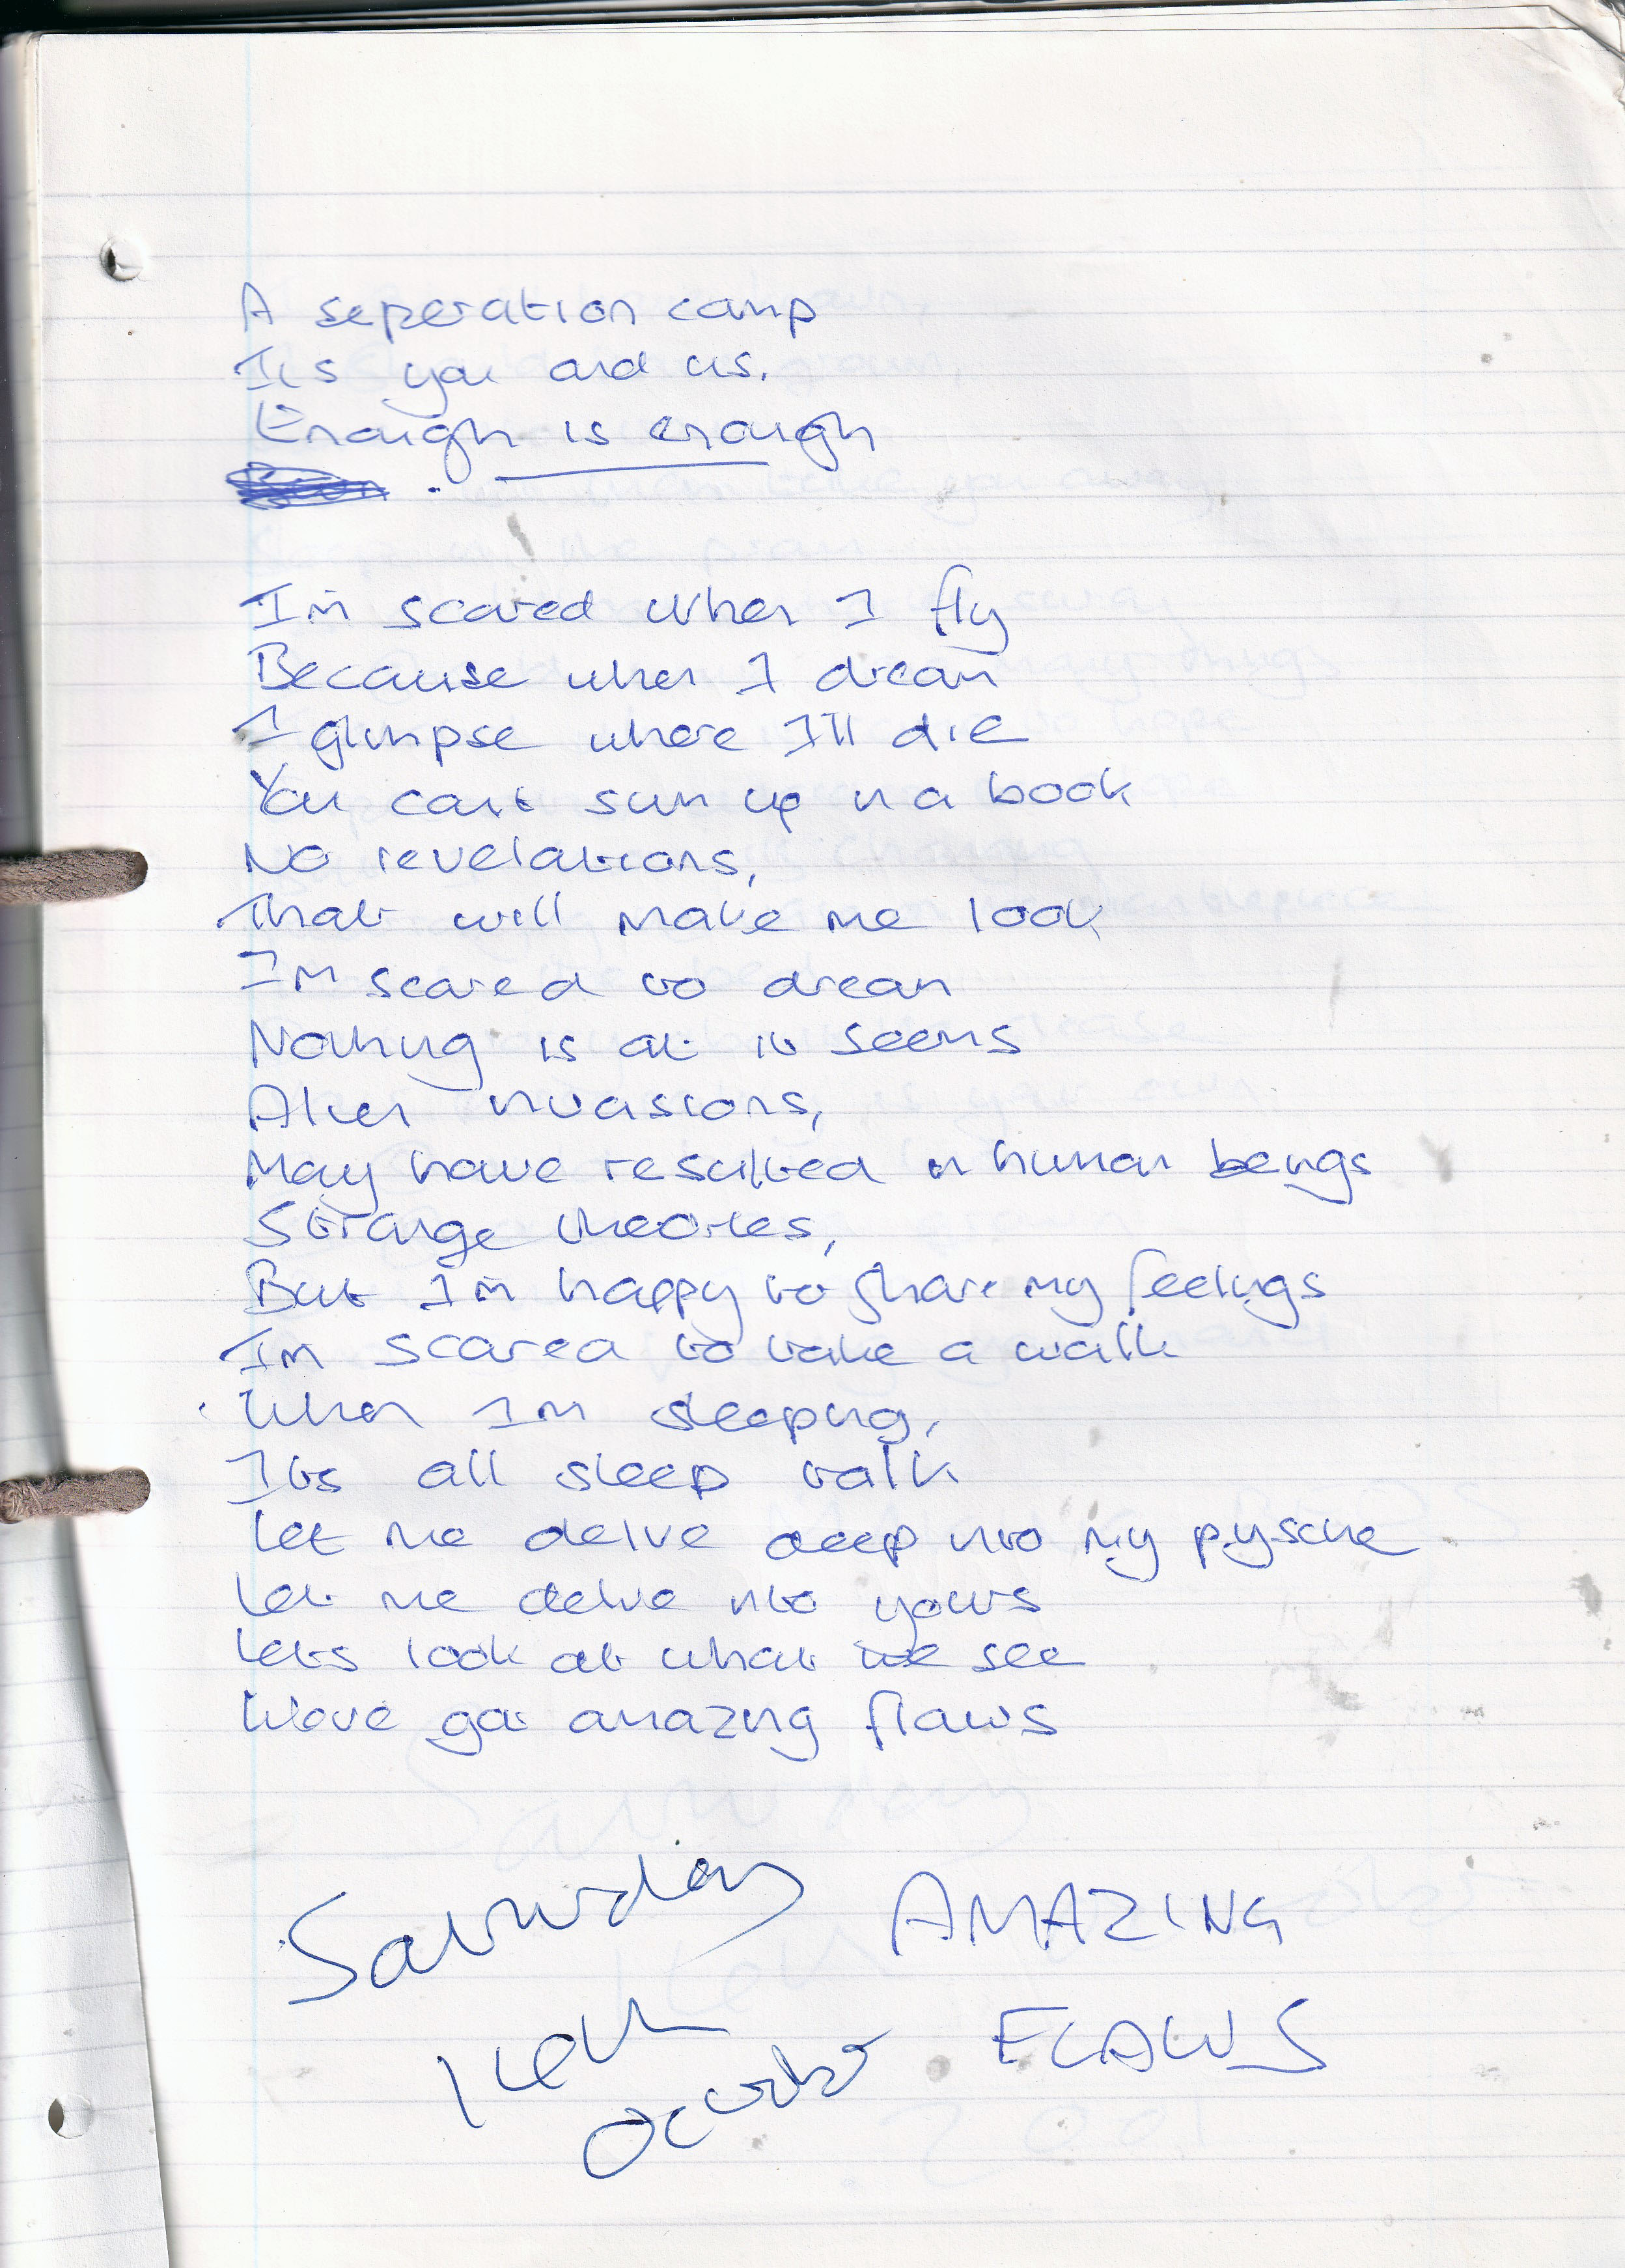 A seperation camp
Its you and us.
Enough is enough
I'm scared when I fly
Because when I dream
I glimpse where I'll die
You cant sum up in a book
No revelations,
That will make me look
Im scared to dream
Nothing is at it seems
Alien invasions,
May have resulted in human beings
Strange theories,
But I'm happy to share my feelings
Im scared to take a walk
When Im sleeping,
Its all sleep talk
Let me delve deep into my pysche
Let me delve into yours
Lets look at what we see
Weve got amazing flaws
Saturday AMAZING
October FLAWS